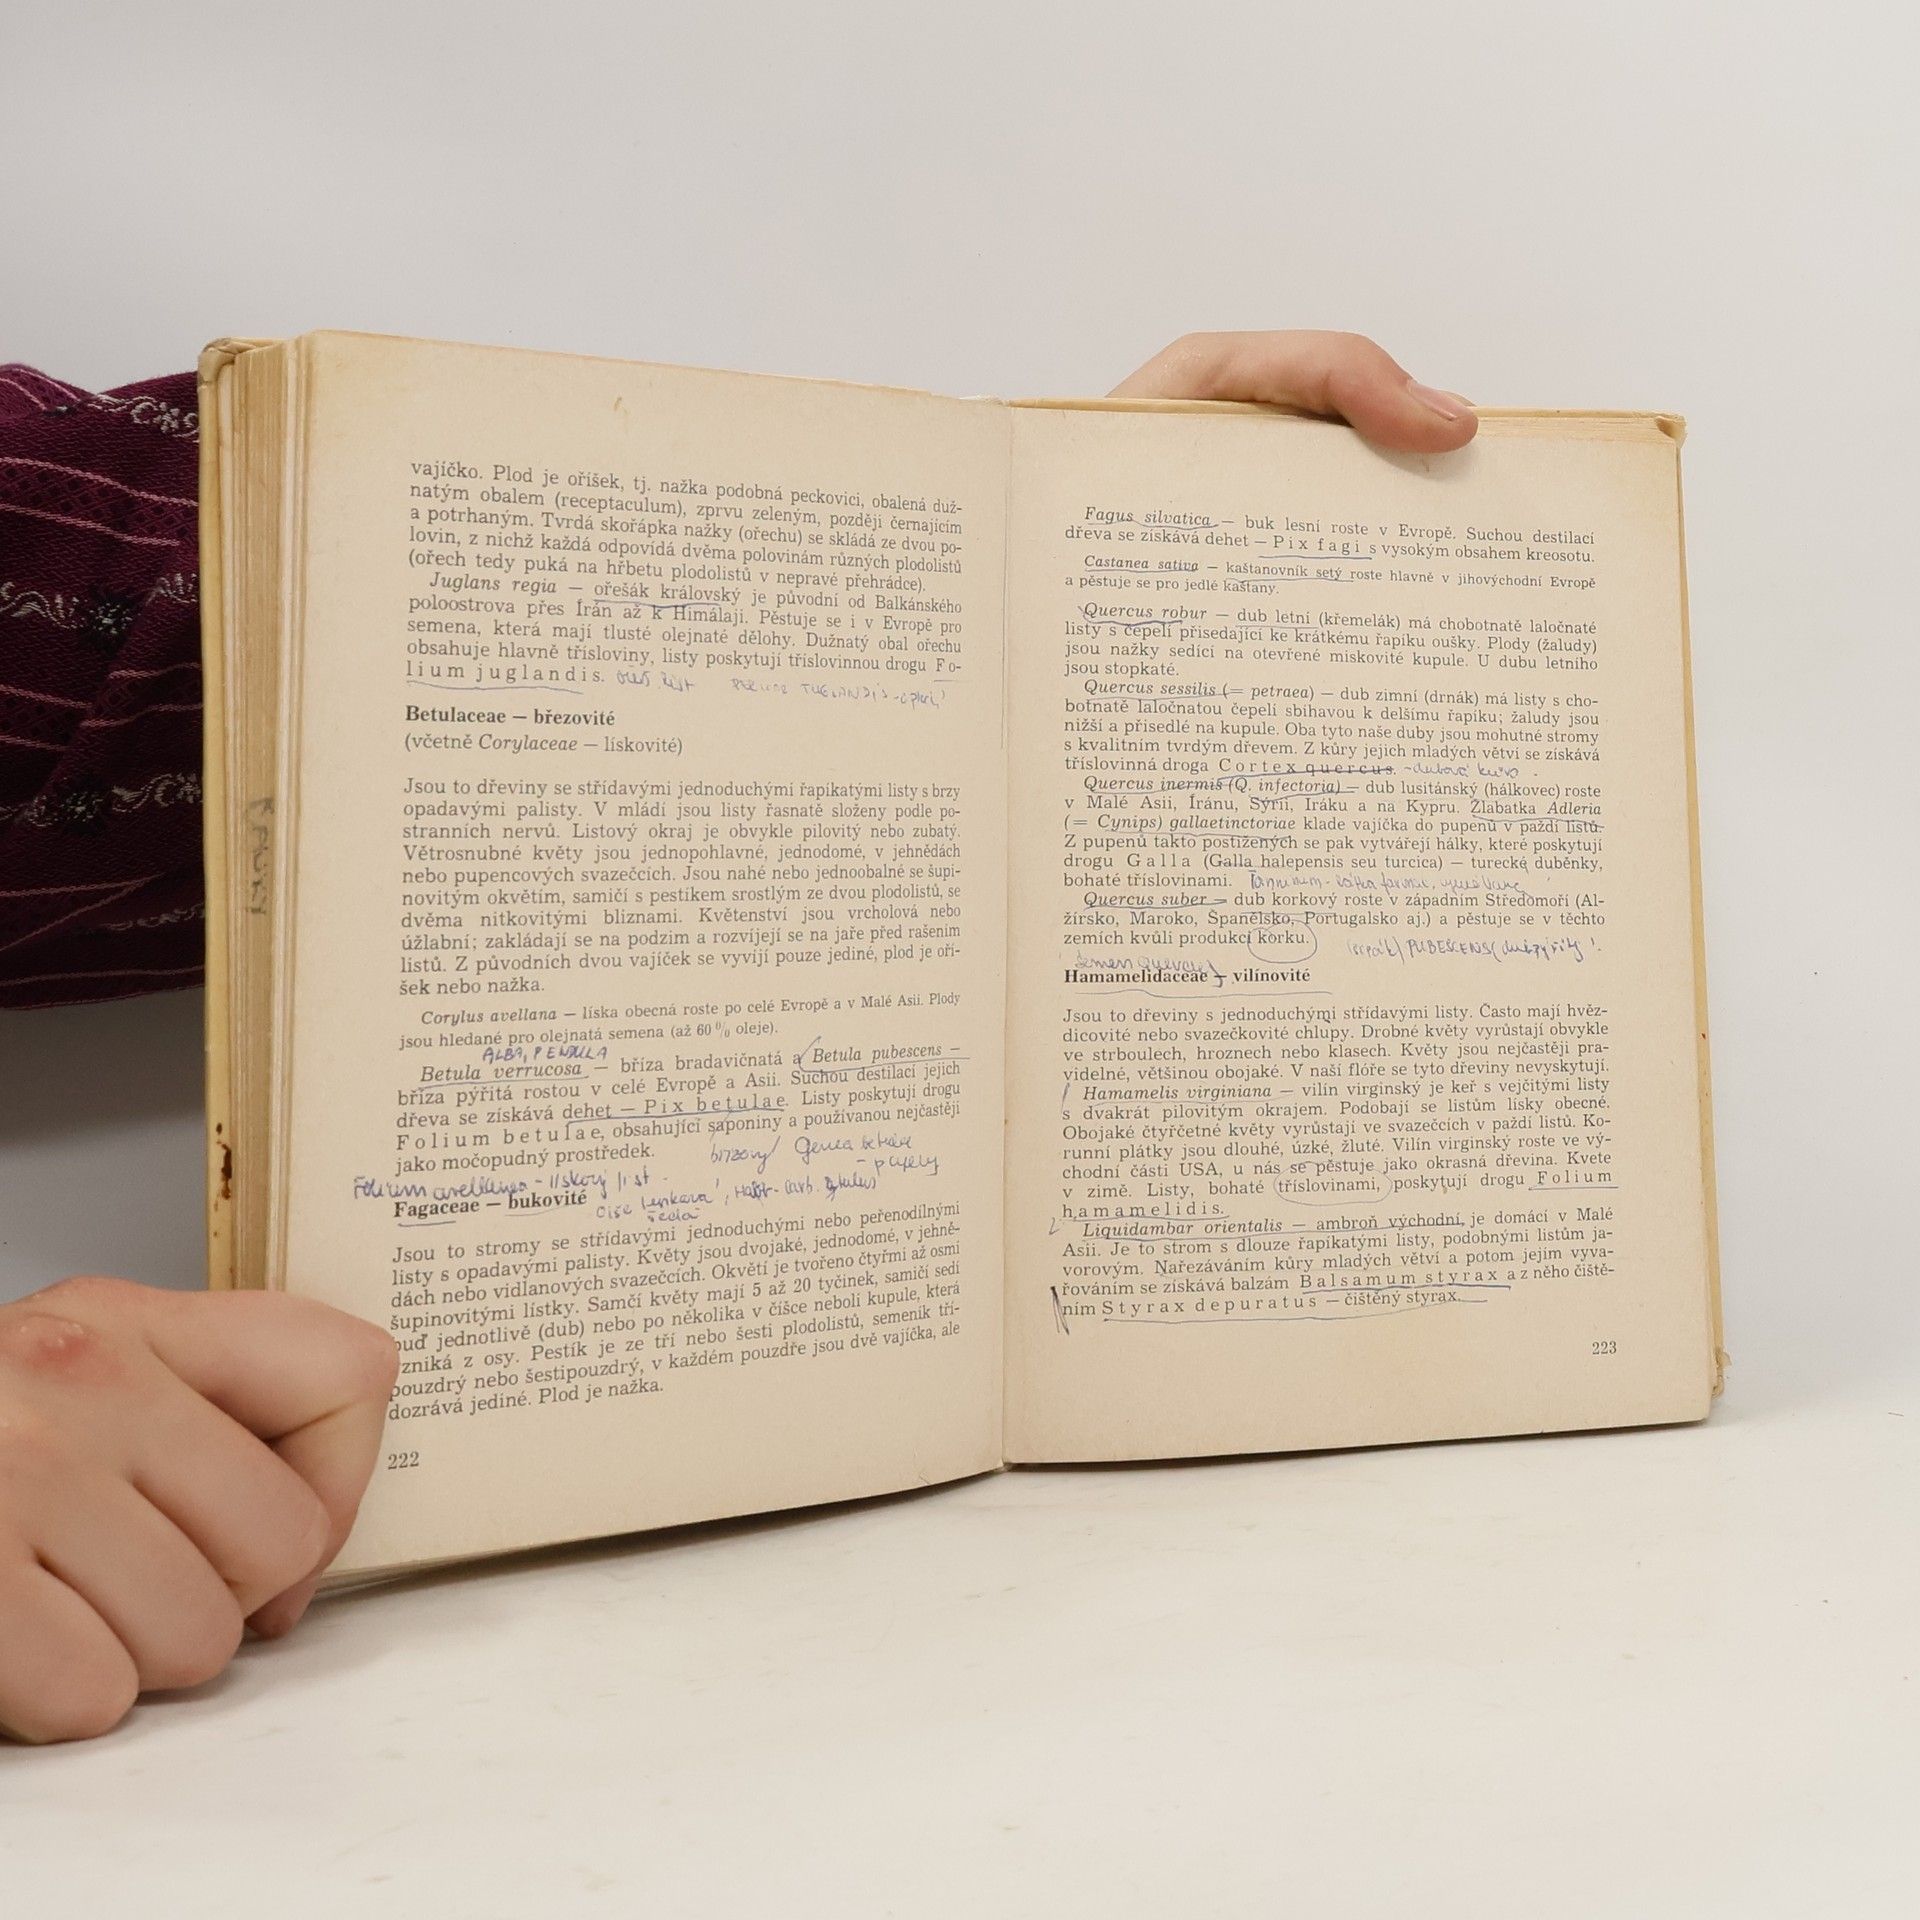 vajíčko. Plod je oříšek, tj. nažka podobná peckovici, obalená duž-
natým obalem (receptaculum), zprvu zeleným, později černajícím
a potrhaným. Tvrdá skořápka nažky (ořechu) se skládá ze dvou po-
lovin, z nichž každá odpovídá dvěma polovinám různých plodolistů
(ořech tedy puká na hřbetu plodolistů v nepravé přehrádce).
Juglans regia — ořešák královský je původní od Balkánského
poloostrova přes Írán až k Himálaji. Pěstuje se i v Evropě pro
semena, která mají tlusté olejnaté dělohy. Dužnatý obal ořechu
obsahuje hlavně třísloviny, listy poskytují tříslovinnou drogu Fo-
lium juglandis. JUGLANDIS
Betulaceae — březovité
(včetně Corylaceae — lískovité)
Jsou to dřeviny se střídavými jednoduchými řapíkatými listy s brzy
opadavými palisty. V mládí jsou listy řasnatě složeny podle po-
stranních nervů. Listový okraj je obvykle pilovitý nebo zubatý.
Větrosnubné květy jsou jednopohlavné, jednodomé, v jehnědách
nebo pupencových svazečcích. Jsou nahé nebo jednoobalné se šupi-
novitým okvětím, samičí s pestíkem srostlým ze dvou plodolistů, se
dvěma nitkovitými bliznami. Květenství jsou vrcholová nebo
úžlabní; zakládají se na podzim a rozvíjejí se na jaře před rašením
listů. Z původních dvou vajíček se vyvíjí pouze jediné, plod je oří-
šek nebo nažka.
Corylus avellana — líska obecná roste po celé Evropě a v Malé Asii. Plody
jsou hledané pro olejnatá semena (až 60 % oleje).
ALBA, PENDULA
Betula verrucosa — bříza bradavičnatá a Betula pubescens —
bříza pýřitá rostou v celé Evropě a Asii. Suchou destilací jejich
dřeva se získává dehet — Pix betulae. Listy poskytují drogu
Folium betulae, obsahující saponiny a používanou nejčastěji
jako močopudný prostředek. březový Gemma betulae
- pupeny
Folium avellanea - lískový list
Fagaceae — bukovité
Jsou to stromy se střídavými jednoduchými nebo peřenodílnými
listy s opadavými palisty. Květy jsou dvojaké, jednodomé, v jehně-
dách nebo vidlanových svazečcích. Okvětí je tvořeno čtyřmi až osmi
šupinovitými lístky. Samčí květy mají 5 až 20 tyčinek, samičí sedí
buď jednotlivě (dub) nebo po několika v číšce neboli kupule, která
vzniká z osy. Pestík je ze tří nebo šesti plodolistů, semeník tří-
pouzdrý nebo šestipouzdrý, v každém pouzdře jsou dvě vajíčka, ale
dozrává jediné. Plod je nažka.
222
Fagus silvatica — buk lesní roste v Evropě. Suchou destilací
dřeva se získává dehet — Pix fagi s vysokým obsahem kreosotu.
Castanea sativa — kaštanovník setý roste hlavně v jihovýchodní Evropě
a pěstuje se pro jedlé kaštany.
Quercus robur — dub letní (křemelák) má chobotnatě laločnaté
listy s čepelí přisedající ke krátkému řapíku oušky. Plody (žaludy)
jsou nažky sedící na otevřené miskovité kupule. U dubu letního
jsou stopkaté.
Quercus sessilis (= petraea) — dub zimní (drnák) má listy s cho-
botnatě laločnatou čepelí sbíhavou k delšímu řapíku; žaludy jsou
nižší a přisedlé na kupule. Oba tyto naše duby jsou mohutné stromy
s kvalitním tvrdým dřevem. Z kůry jejich mladých větví se získává
tříslovinná droga Cortex quercus. - dubová kůra
Quercus inermis (Q. infectoria) — dub lusitánský (hálkovec) roste
v Malé Asii, Íránu, Sýrii, Iráku a na Kypru. Žlabatka Adleria
(= Cynips) gallaetinctoriae klade vajíčka do pupenů v paždí listů.
Z pupenů takto postižených se pak vytvářejí hálky, které poskytují
drogu Galla (Galla halepensis seu turcica) — turecké duběnky,
bohaté tříslovinami.
Quercus suber — dub korkový roste v západním Středomoří (Al-
žírsko, Maroko, Španělsko, Portugalsko aj.) a pěstuje se v těchto
zemích kvůli produkci korku.
PUBESCENS
Semen Quercus
Hamamelidaceae — vilínovité
Jsou to dřeviny s jednoduchými střídavými listy. Často mají hvěz-
dicovité nebo svazečkovité chlupy. Drobné květy vyrůstají obvykle
ve strboulech, hroznech nebo klasech. Květy jsou nejčastěji pra-
videlné, většinou obojaké. V naší flóře se tyto dřeviny nevyskytují.
Hamamelis virginiana — vilín virginský je keř s vejčitými listy
s dvakrát pilovitým okrajem. Podobají se listům lísky obecné.
Obojaké čtyřčetné květy vyrůstají ve svazečcích v paždí listů. Ko-
runní plátky jsou dlouhé, úzké, žluté. Vilín virginský roste ve vý-
chodní části USA, u nás se pěstuje jako okrasná dřevina. Kvete
v zimě. Listy, bohaté tříslovinami, poskytují drogu Folium
hamamelidis.
2 Liquidambar orientalis — ambroň východní, je domácí v Malé
Asii. Je to strom s dlouze řapíkatými listy, podobnými listům ja-
vorovým. Nařezáváním kůry mladých větví a potom jejím vyva-
řováním se získává balzám Balsamum styrax a z něho čiště-
ním Styrax depuratus — čištěný styrax.
223